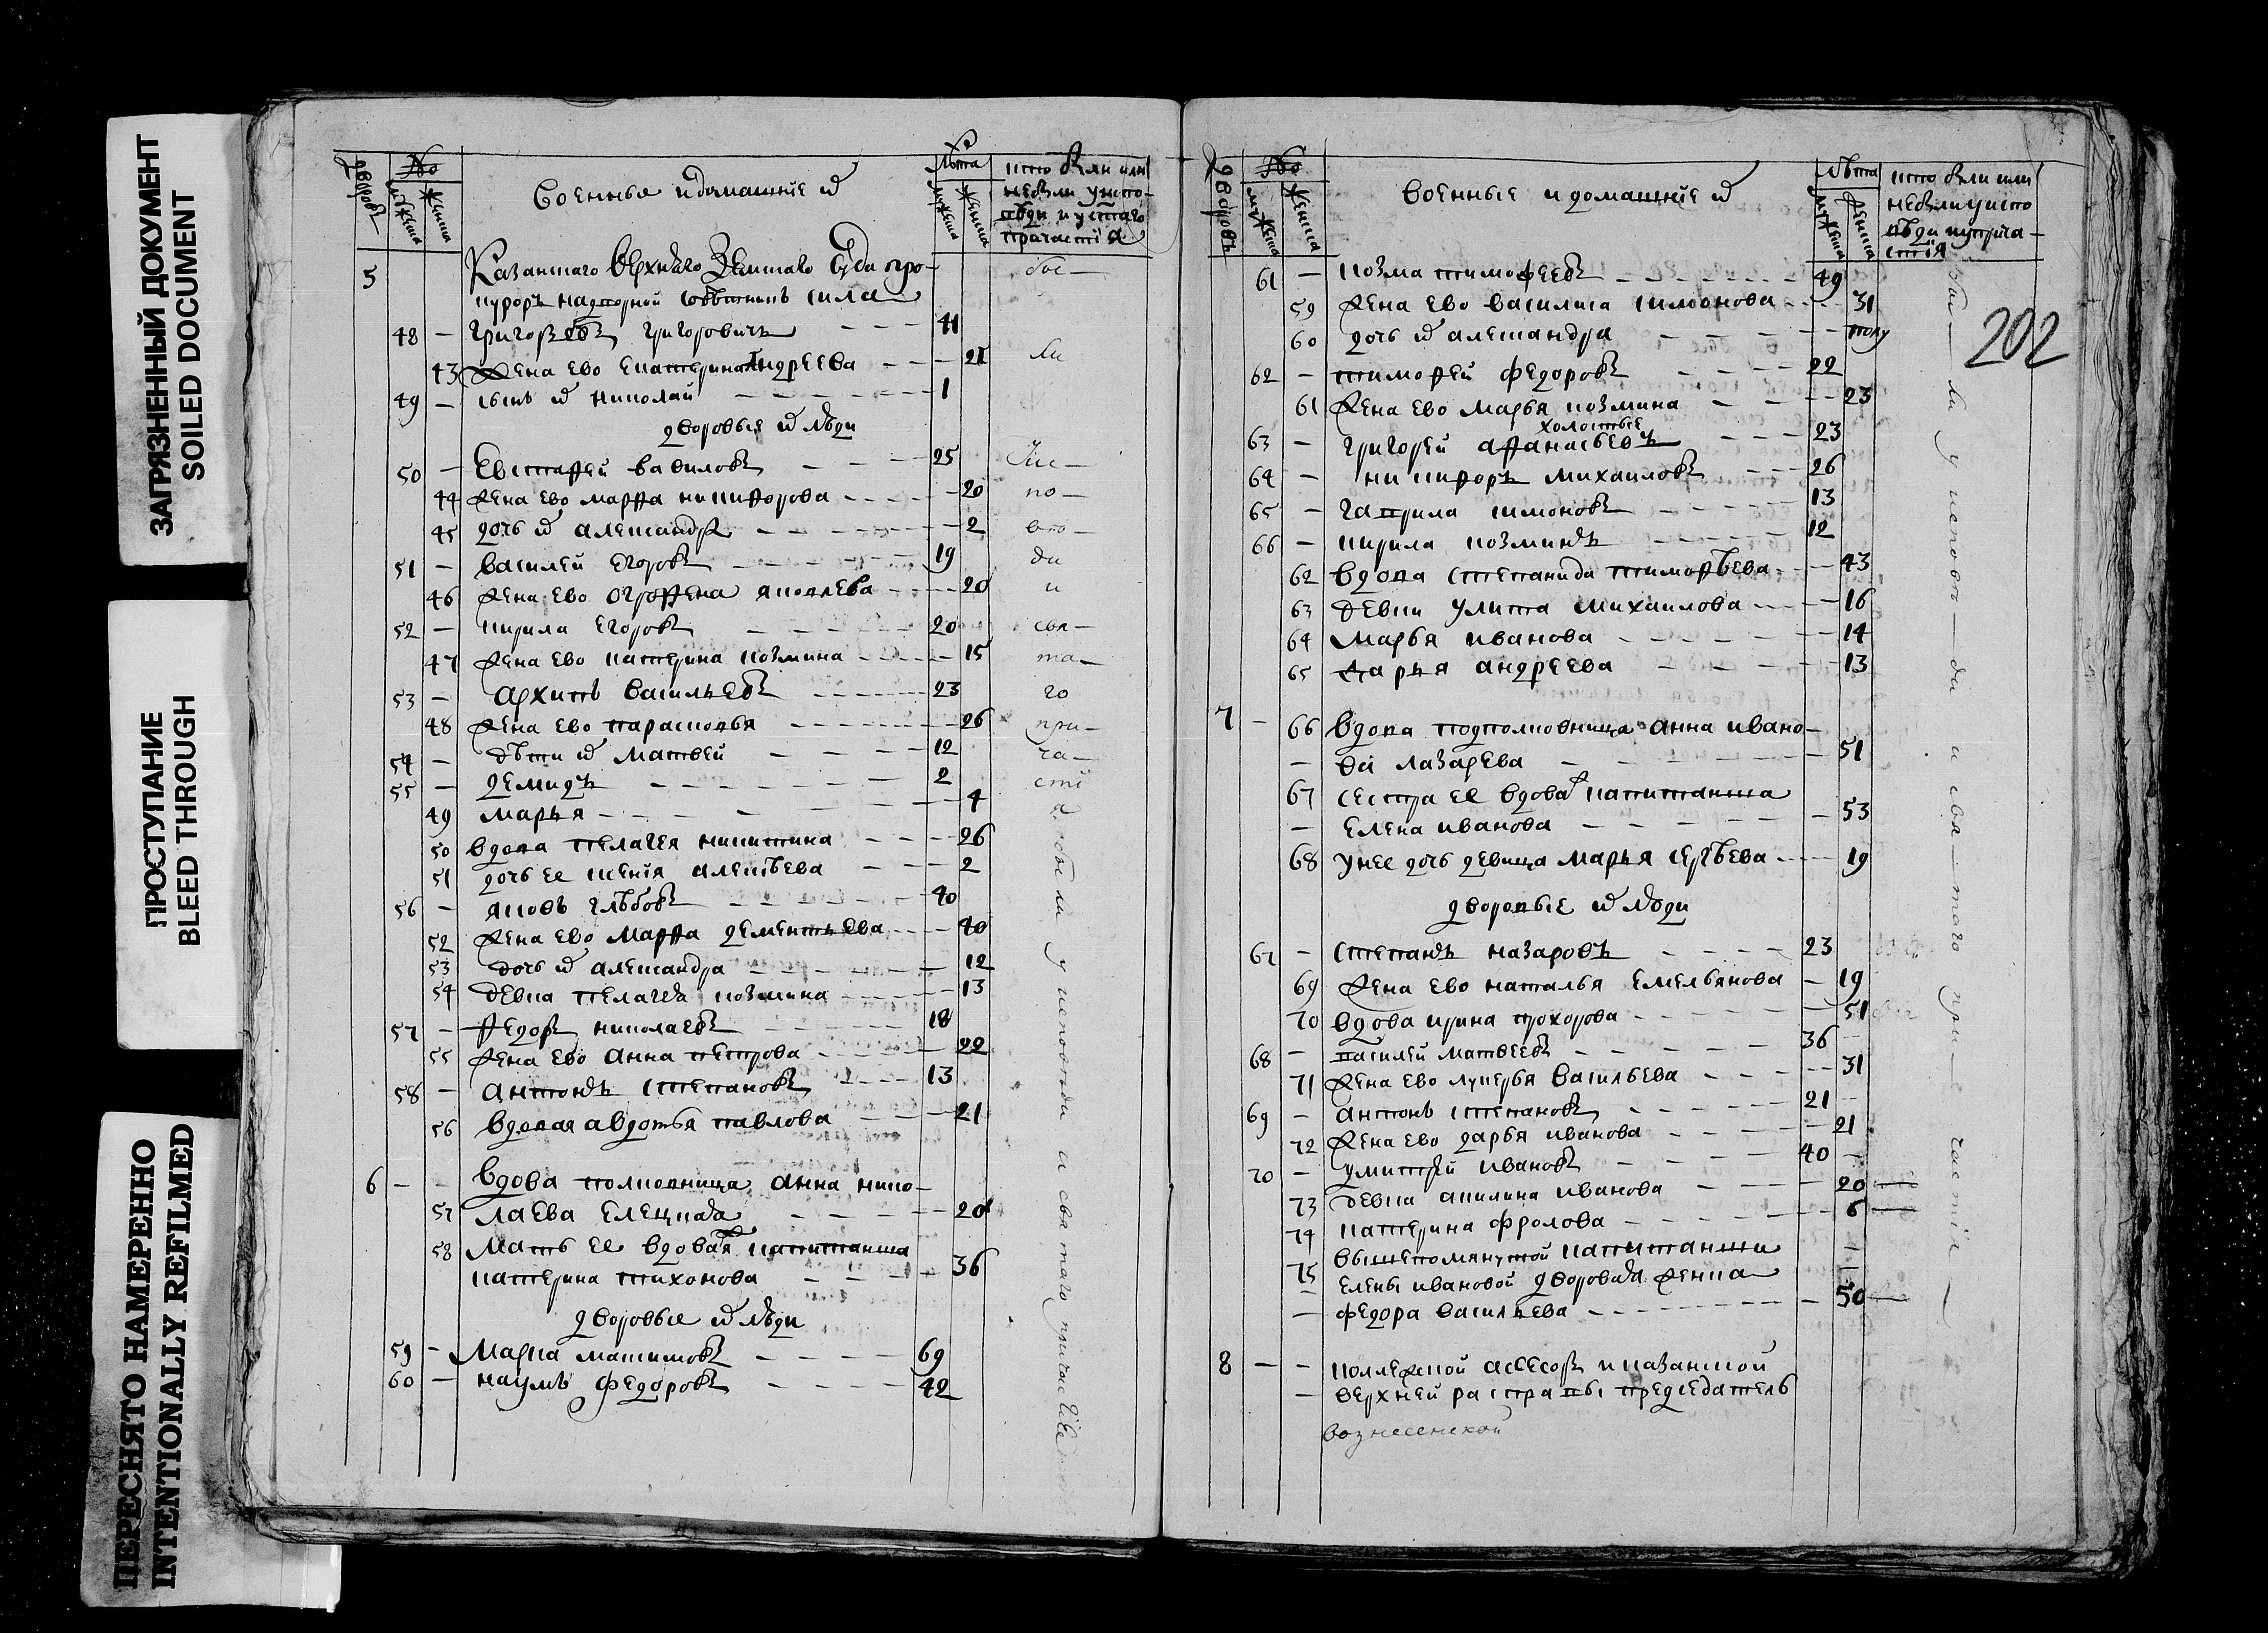 ЗАГРЯЗНЕННЫЙ ДОКУМЕНТ
SOILED DOCUMENT
ПРОСТУПАНИЕ
BLEED THROUGH
ПЕРЕСНЯТО НАМЕРЕННО
INTENTIONALLY REFILMED
дворовъ
№
мужеска
женска
военные и домашние их
лѣта
мужеска
женска
кто были или
не были у испо-
вѣди и у святаго
причастия
5
Казанскаго верхняго Земскаго суда про-
куроръ надворной совѣтникъ сила
48 — григорьевъ григоровичъ 41
43 жена ево екатерина андреева 21
49 — сынъ их николай 1
дворовые их люди
50 — евстафей вавиловъ 25
44 жена ево марфа никифорова 20
45 дочь их александра 2
51 — василей егоровъ 19
46 жена ево огрофена яковлева 20
52 — кирила егоровъ 20
47 жена ево катерина козмина 15
53 — архипъ васильевъ 23
48 жена ево парасковья 26
54 — дѣти их матвей 12
55 — демидъ 2
49 марья 4
50 вдова пелагея никитина 26
51 дочь ее ксения алексѣева 2
56 — яковъ глѣбовъ 40
52 жена ево марфа дементьева 40
53 дочь их александра 12
54 девка пелагея козмина 13
57 — федоръ николаевъ 18
55 жена ево анна петрова 22
58 — антонъ степановъ 13
56 вдовая авдотья павлова 21
6 — вдова полковница анна нико-
57 лаева елецкая 20
58 мать ее вдовая капитанша
катерина тихонова 36
дворовые их люди
59 — марка максимовъ 69
60 — наумъ федоровъ 42
были
у исповѣди и святаго причастия
дворовъ
№
мужеска
женска
военные и домашние их
лѣта
мужеска
женска
кто были или
не были у испо
вѣди и у прича-
стия
202
61 — козма тимофеевъ 49
59 жена ево василиса симионова 31
60 дочь их александра полу
62 — тимофей федоровъ 22
61 жена ево марья козмина 23
холостые
63 — григорей афанасьевъ 23
64 — никифоръ михаиловъ 26
65 — гаврила симоновъ 13
66 — кирила козминъ 12
62 вдова степанида тимофѣева 43
63 девки улита михаилова 16
64 марья иванова 14
65 дарья андреева 13
7 — 66 вдова подполковница анна ивано-
— ва лазарева 51
67 сестра ее вдова капитанша
— елена иванова 53
68 у нее дочь девица марья сергѣева 19
дворовые их люди
67 — степанъ назаровъ 23
69 жена ево наталья емельянова 19
70 вдова ирина прохорова 51
68 — василей матвеевъ 36
71 жена ево лукерья васильева 31
69 — антонъ степановъ 21
72 жена ево дарья иванова 21
70 — умитрей ивановъ 40
73 девка акилина иванова 20
74 катерина фролова 6
75 вышепомянутой капитанши
— елены ивановой дворовая женка
— федора васильева 50
8 — — коллежской асесоръ и казанской
— верхней расправы председатель
вознесенской
были у исповѣди и святаго причастия